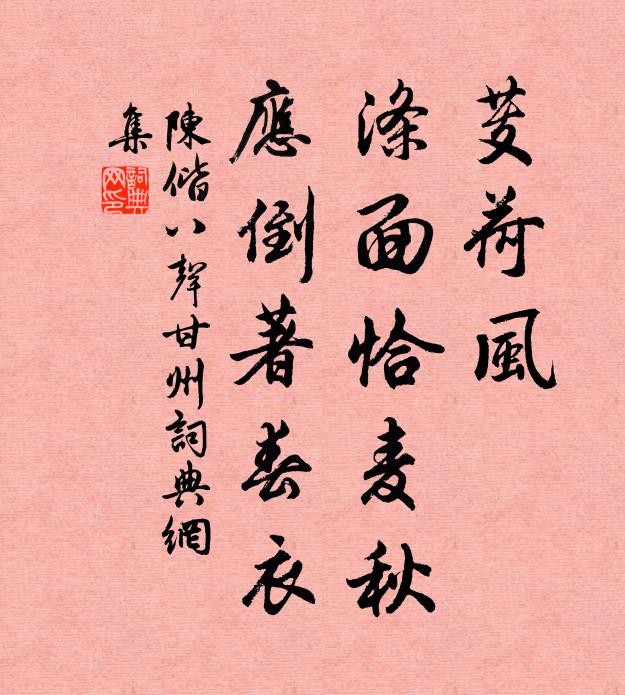 芰荷風
滌面恰麦秋
應倒著春衣
陳偕八聲甘州詞典網
集
詞典網印